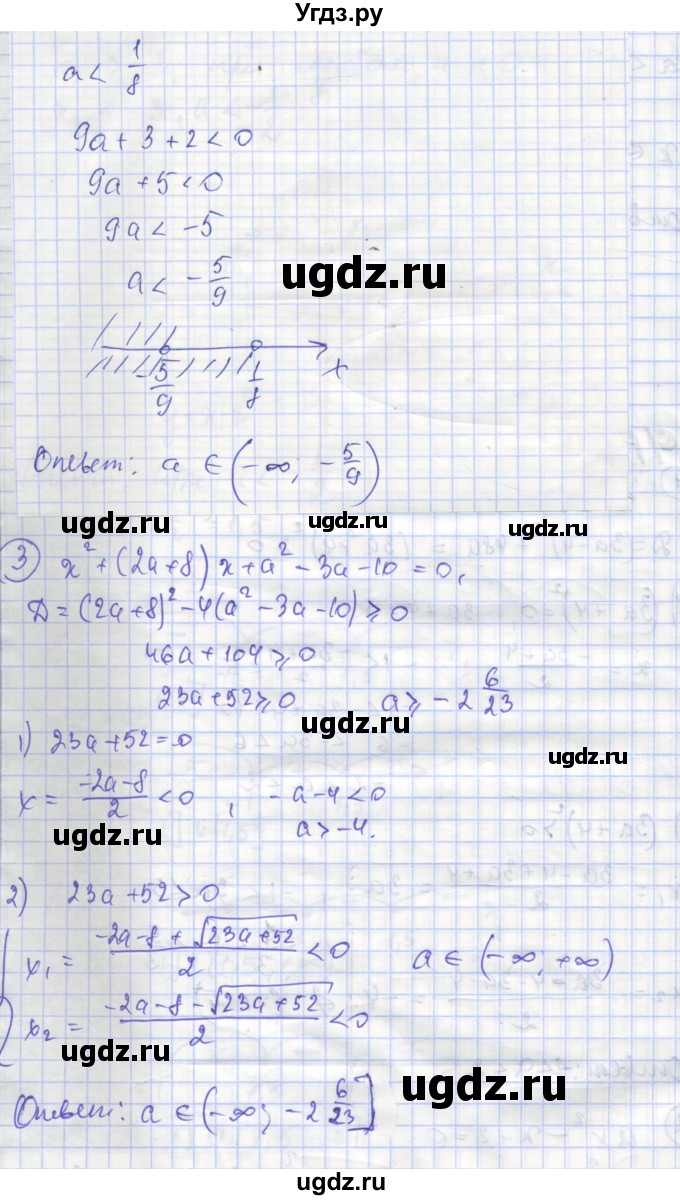 Угдз.ру
a < 1/8
9a + 3 + 2 < 0
9a + 5 < 0
9a < -5
a < -5/9
ugdz.ru
-5/9 1/8 x
Ответ: a ∈ (-∞; -5/9)
ugdz.ru ugdz.ru
3 x² + (2a+8)x + a² - 3a - 10 = 0,
Д = (2a+8)² - 4(a² - 3a - 10) ⩾ 0
46a + 104 ⩾ 0
23a + 52 ⩾ 0 a ⩾ -2 6/23
ugdz.ru
1) 23a + 52 = 0
ugdz.ru
x = (-2a-8)/2 < 0, -a-4 < 0
a > -4.
ugdz.ru ugdz.ru
2) 23a + 52 > 0
x₁ = (-2a-8 + √(23a+52))/2 < 0 a ∈ (-∞; +∞)
ugdz.ru
x₂ = (-2a-8 - √(23a+52))/2 < 0
ugdz.ru
ugdz.ru
Ответ: a ∈ (-∞; -2 6/23]
ugdz.ru ugdz.ru